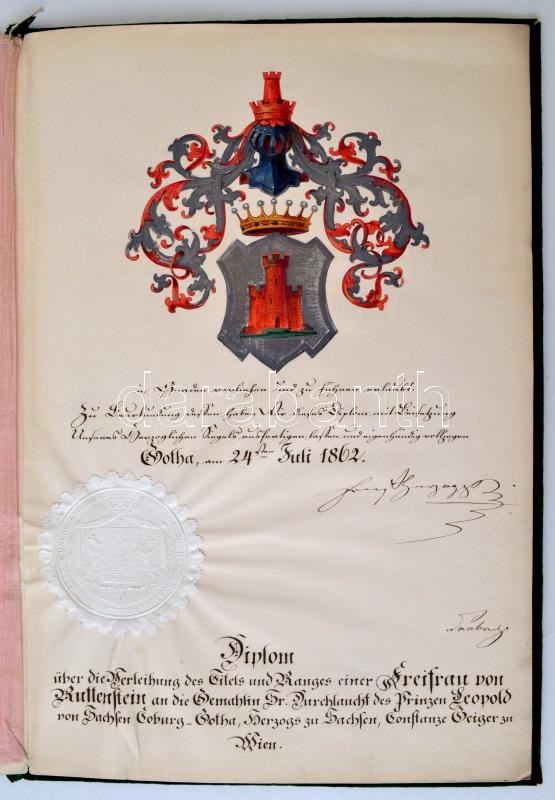 in Gnaden verliehen und zu führen erlaubt.
Zu Beurkundung dessen haben Wir dieses Diplom mit Beisetzung
Unseres Herzoglichen Siegels ausfertigen lassen und eigenhändig vollzogen
Gotha, am 24sten Juli 1862.
darabanth
Seebach
Diplom
über die Verleihung des Titels und Ranges einer Freifrau von
Ruttenstein an die Gemahlin Sr. Durchlaucht des Prinzen Leopold
von Sachsen Coburg-Gotha, Herzogs zu Sachsen, Constanze Geiger zu
Wien.